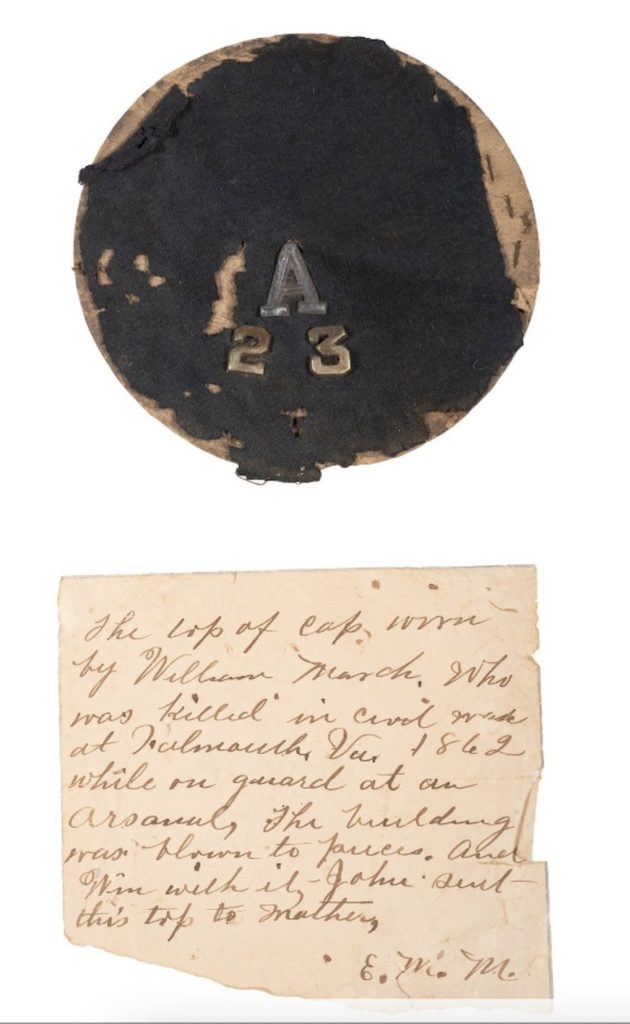 A
2 3
The top of cap. worn
by William March. Who
was killed in civil war
at Falmouth. Va. 1862
while on guard at an
Arsanal, The building
was blown to pieces. And
Wm with it - John sent
this top to Mother,
E. M. M.